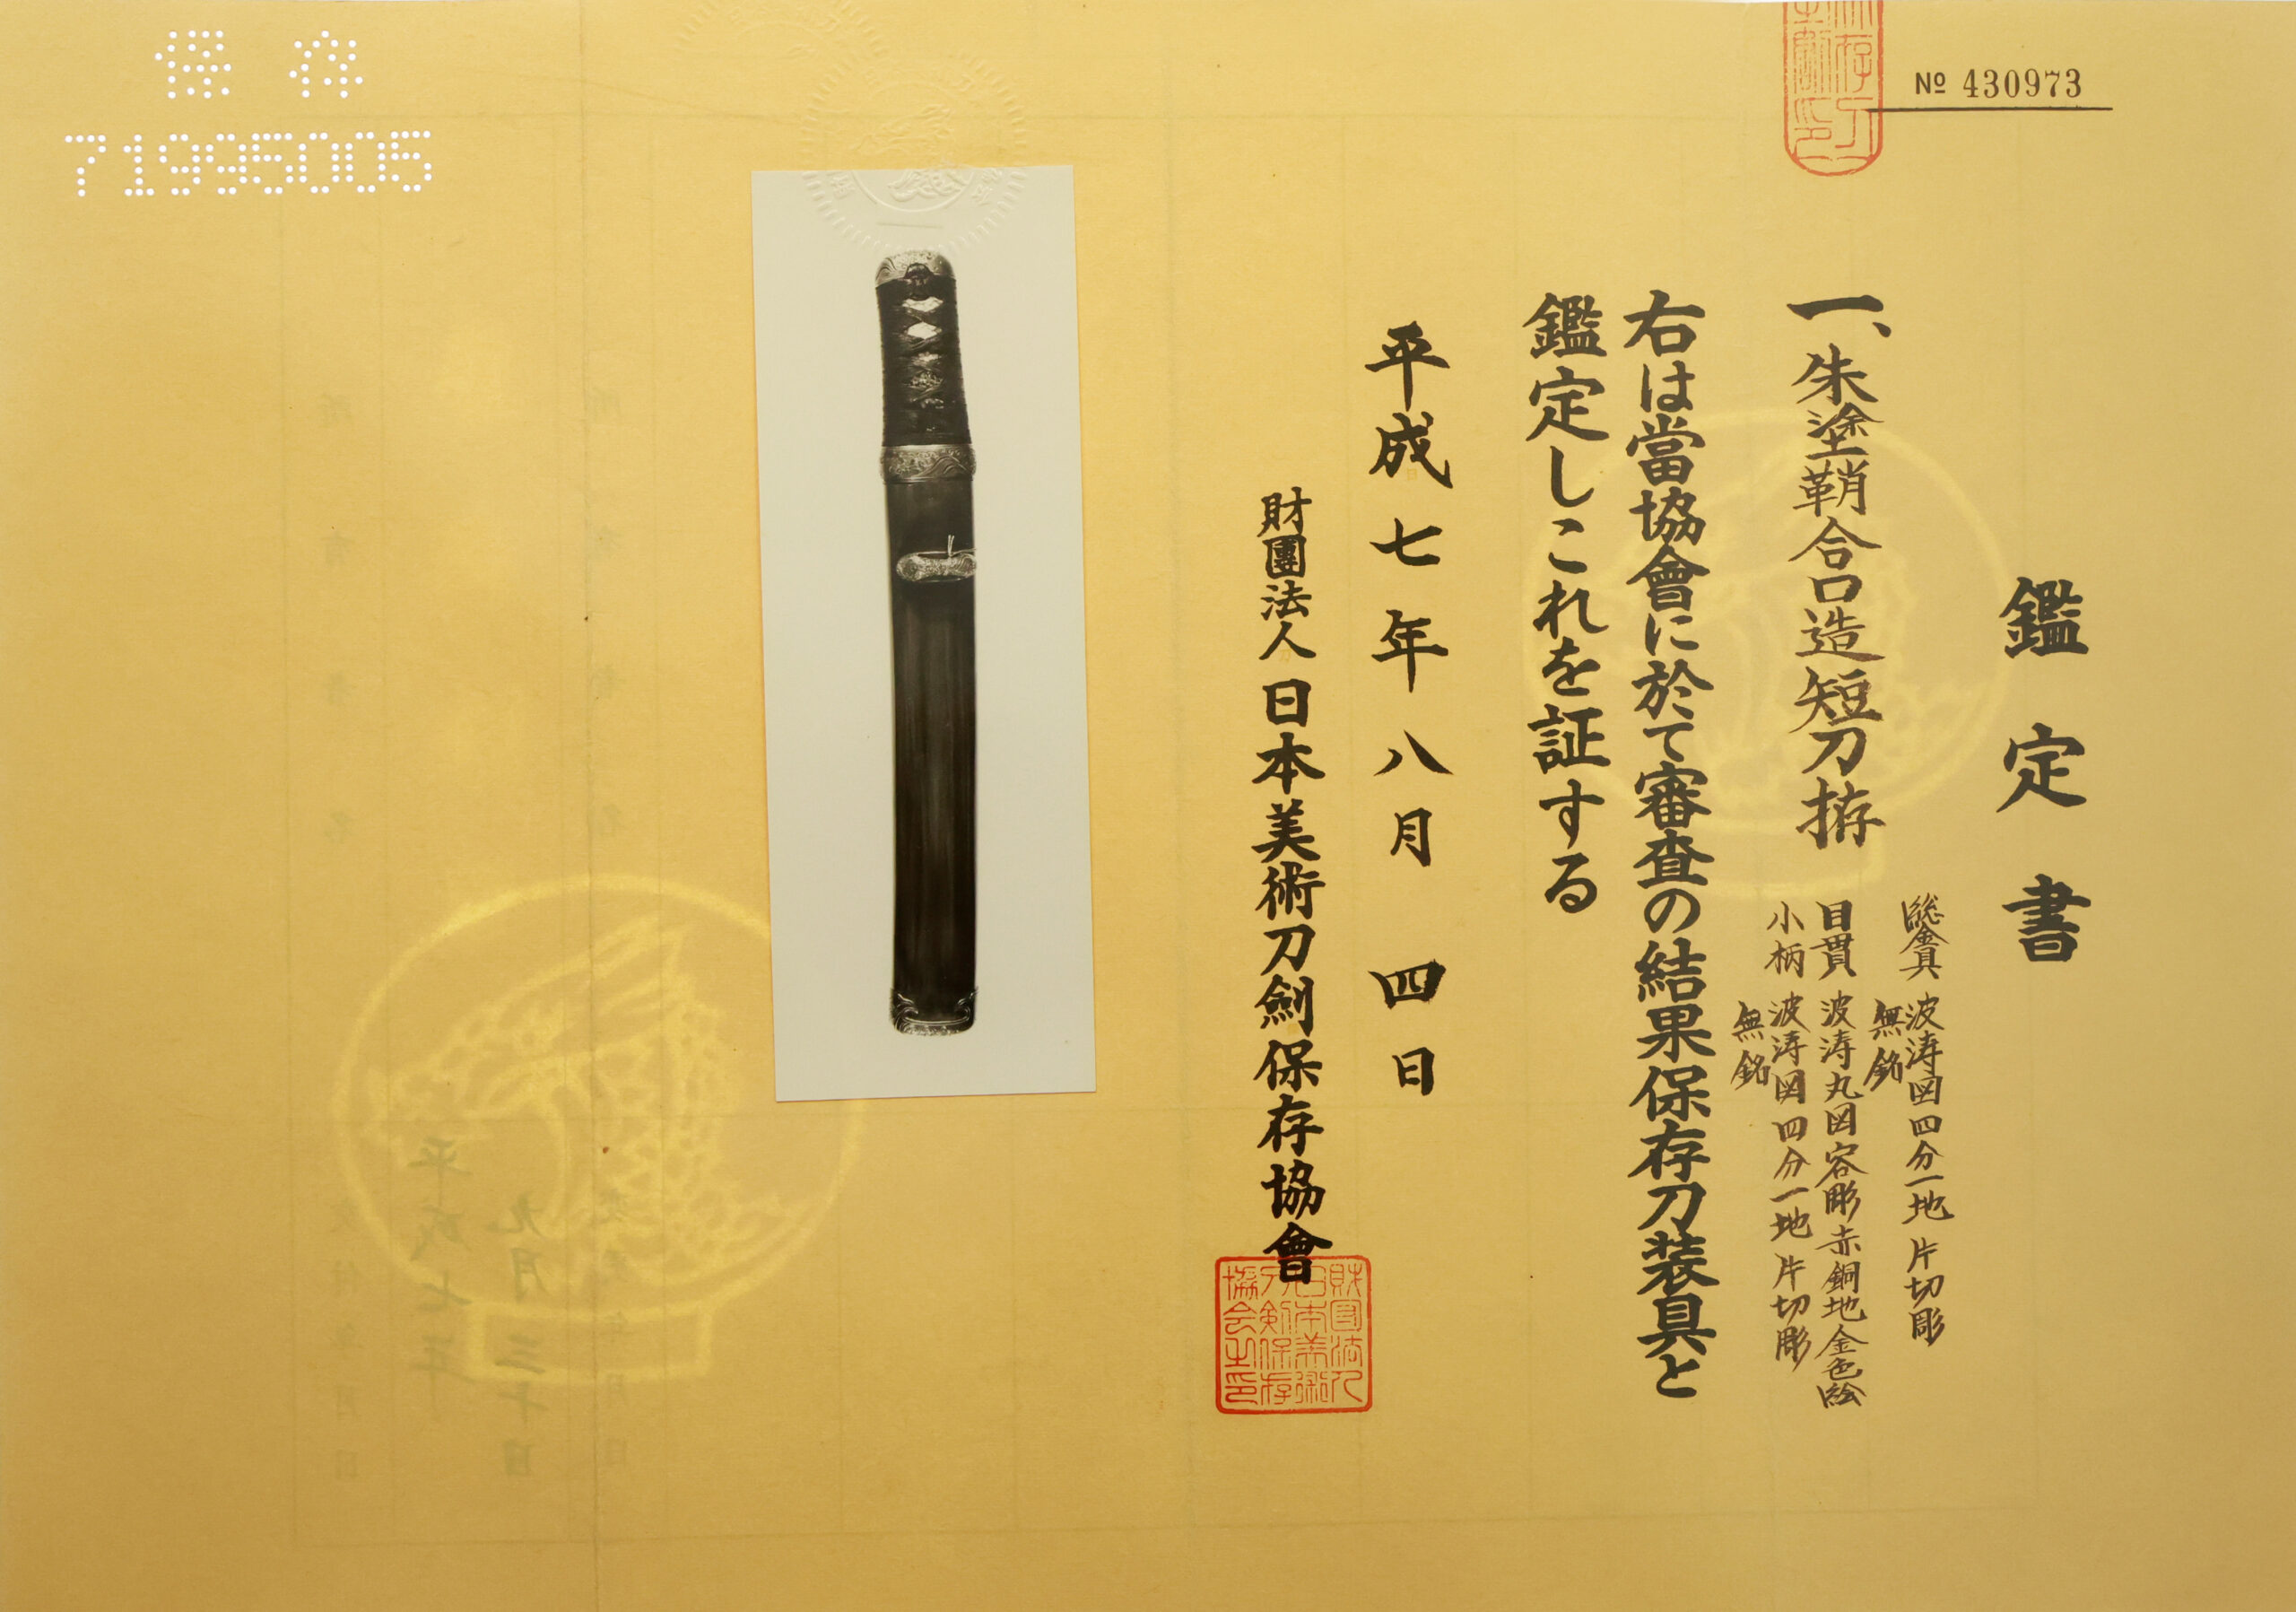 № 430973
鑑定書
一、朱塗鞘合口造短刀拵
総金具 波涛図四分一地 片切彫
無銘
目貫 波涛丸図容彫赤銅地金色絵
小柄 波涛図四分一地 片切彫
無銘
右は當協會に於て審査の結果保存刀装具と
鑑定しこれを証する
平成七年八月四日
財團法人日本美術刀劍保存協會
財団法人日本美術刀剣保存協会之印
保存
71995005
平成七年
九月三十日